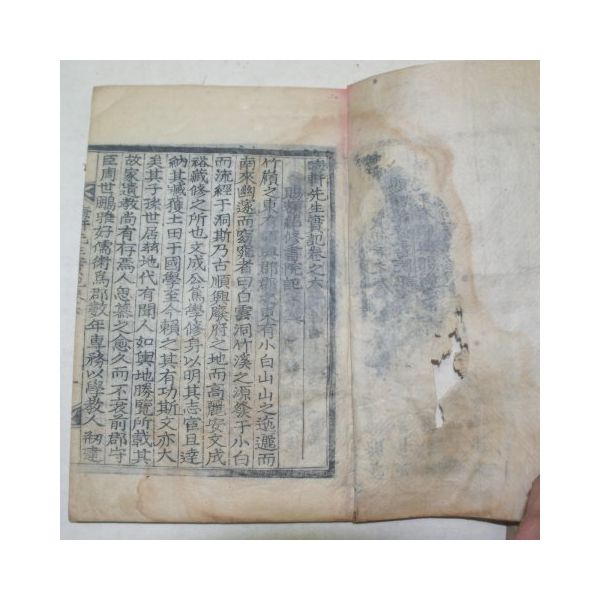 晦軒先生實記卷之六
賜額紹修書院記
竹嶺之東 興郡郡之東有小白山山之逶邐而
南來幽邃而窈窕者曰白雲洞竹溪之源發于小白
而流經于洞斯乃古順興廢府之地而高麗安文成
裕藏修之所也文成公篤學修身以明其志官且達
納其臧獲土田于國學至今賴之其有功斯文亦大
矣其子孫世居玆地代有聞人如輿地勝覽所載其
故家遺敎尚有存焉人思慕之愈久而不衰前郡守
臣周世鵬雅好儒術爲郡數年專務以學敎人刱建